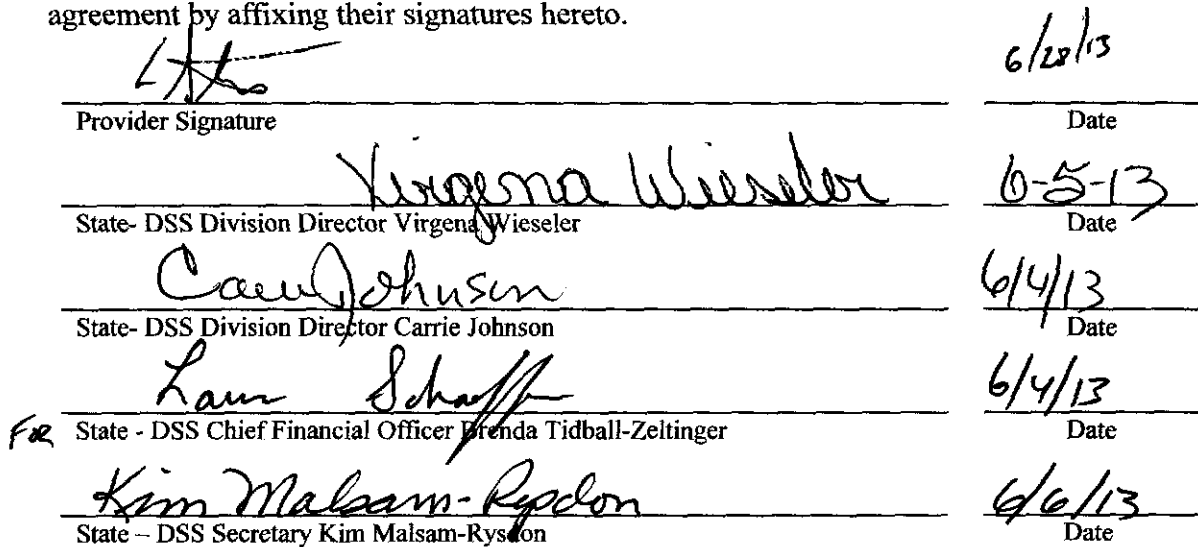 agreement by affixing their signatures hereto.
6/28/13
Provider Signature Date
Virgena Wieseler 6-5-13
State- DSS Division Director Virgena Wieseler Date
Carrie Johnson 6/4/13
State- DSS Division Director Carrie Johnson Date
6/4/13
FOR State - DSS Chief Financial Officer Brenda Tidball-Zeltinger Date
Kim Malsam-Rysdon 6/6/13
State – DSS Secretary Kim Malsam-Rysdon Date